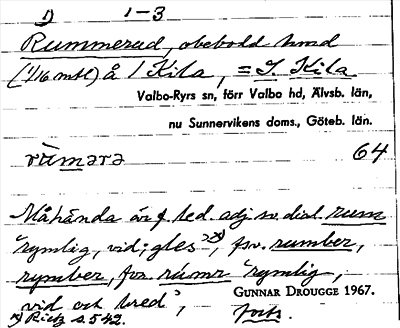 1) 1-3
Rummerud, obebodd hmd
(1/16 mtl) å 1 Kila, = I. Kila
Valbo-Ryrs sn, förr Valbo hd, Älvsb. län,
nu Sunnervikens doms., Göteb. län.
64
Måhända är f. led. adj sv. dial. rum
"rymlig, vid; gles" x), fsv. rumber,
rymber, fvn. rúmr "rymlig,
vid och bred",
GUNNAR DROUGGE 1967.
x) Rietz s. 542.
forts.